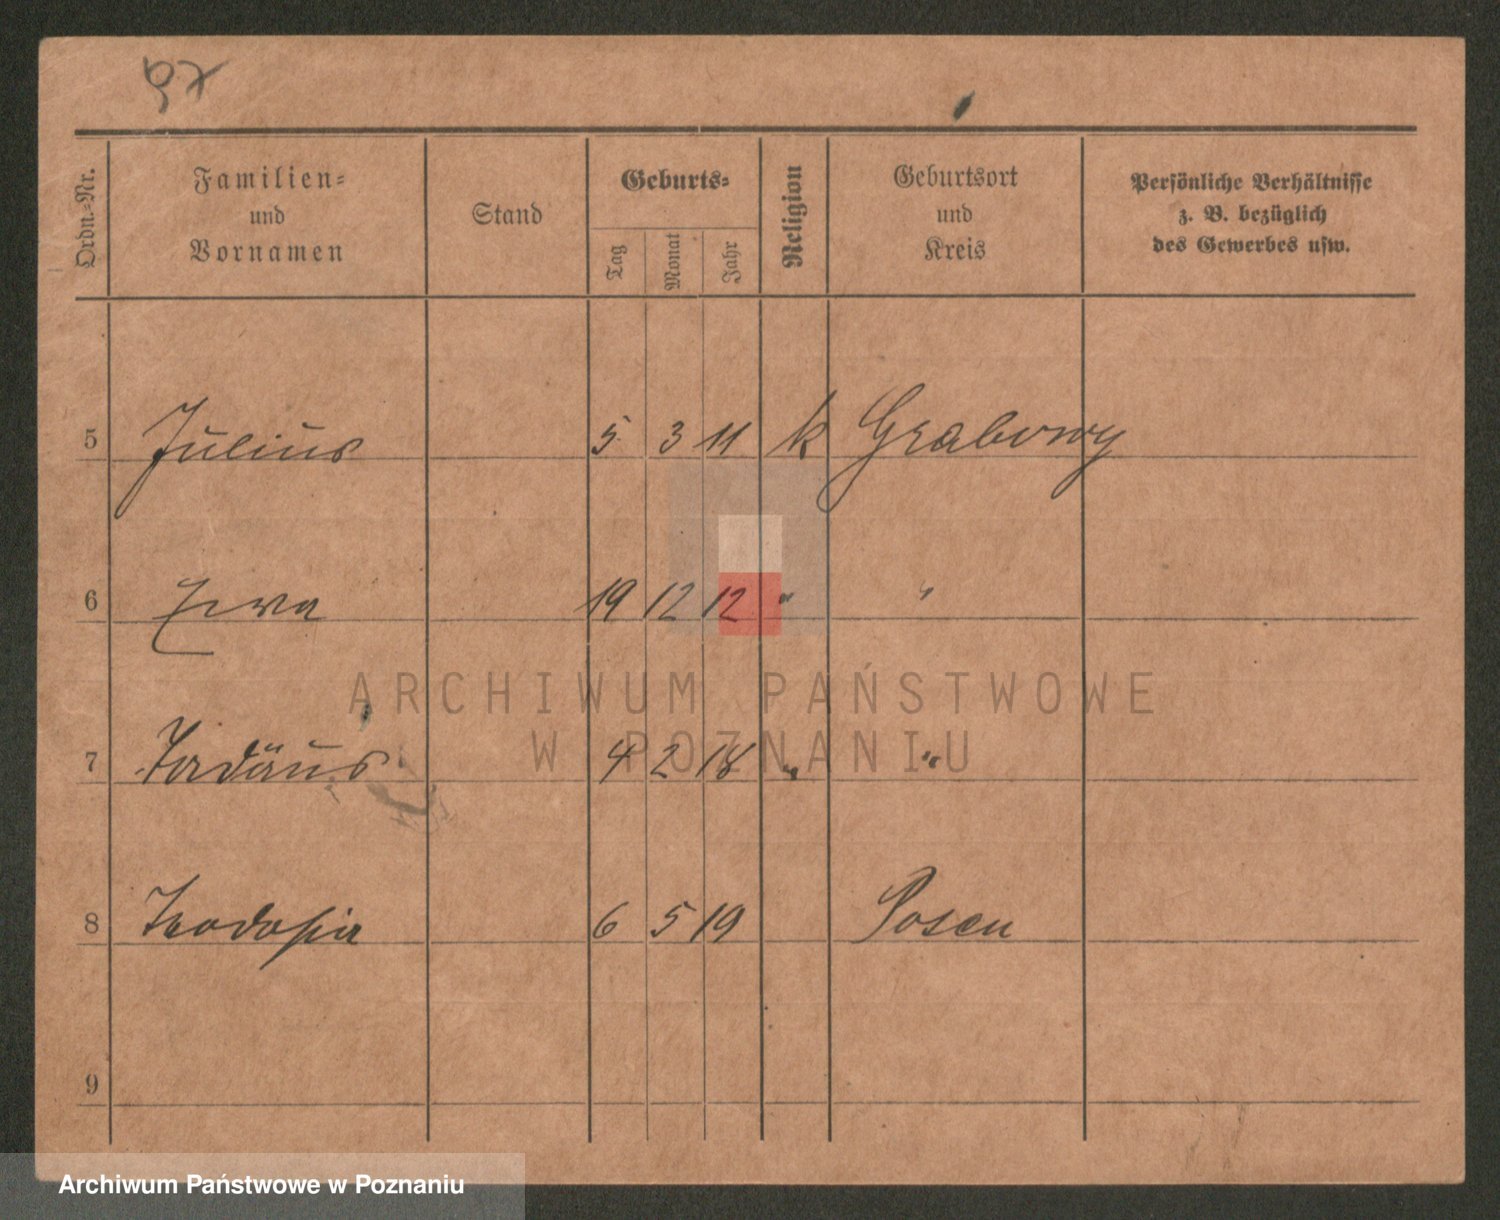 Ordn.-Nr.
Familien-
und
Vornamen
Stand
Geburts-
Tag
Monat
Jahr
Religion
Geburtsort
und
Kreis
Persönliche Verhältnisse
z. B. bezüglich
des Gewerbes usw.
5 Julius 5 3 11 k Grabowy
6 Ewa 19 12 12 " "
7 Tadäus 4 2 18 " "
8 Teodosia 6 5 19 Posen
9
ARCHIWUM PAŃSTWOWE
W POZNANIU
Archiwum Państwowe w Poznaniu